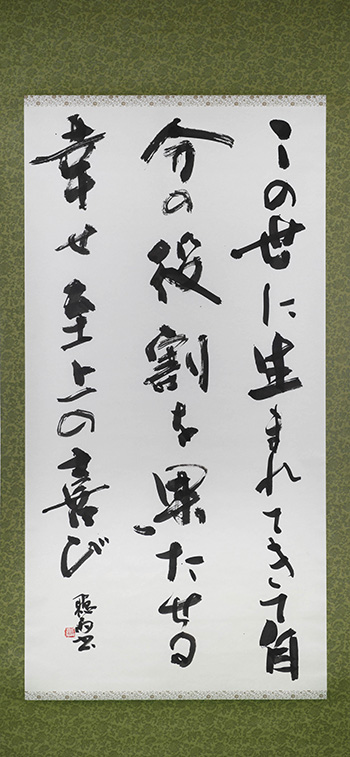 この世に生まれてきて自
分の役割を果たせる
幸せ至上の喜び